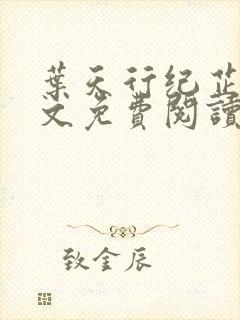 葉天行纪芷
文免費閱讀
致金辰